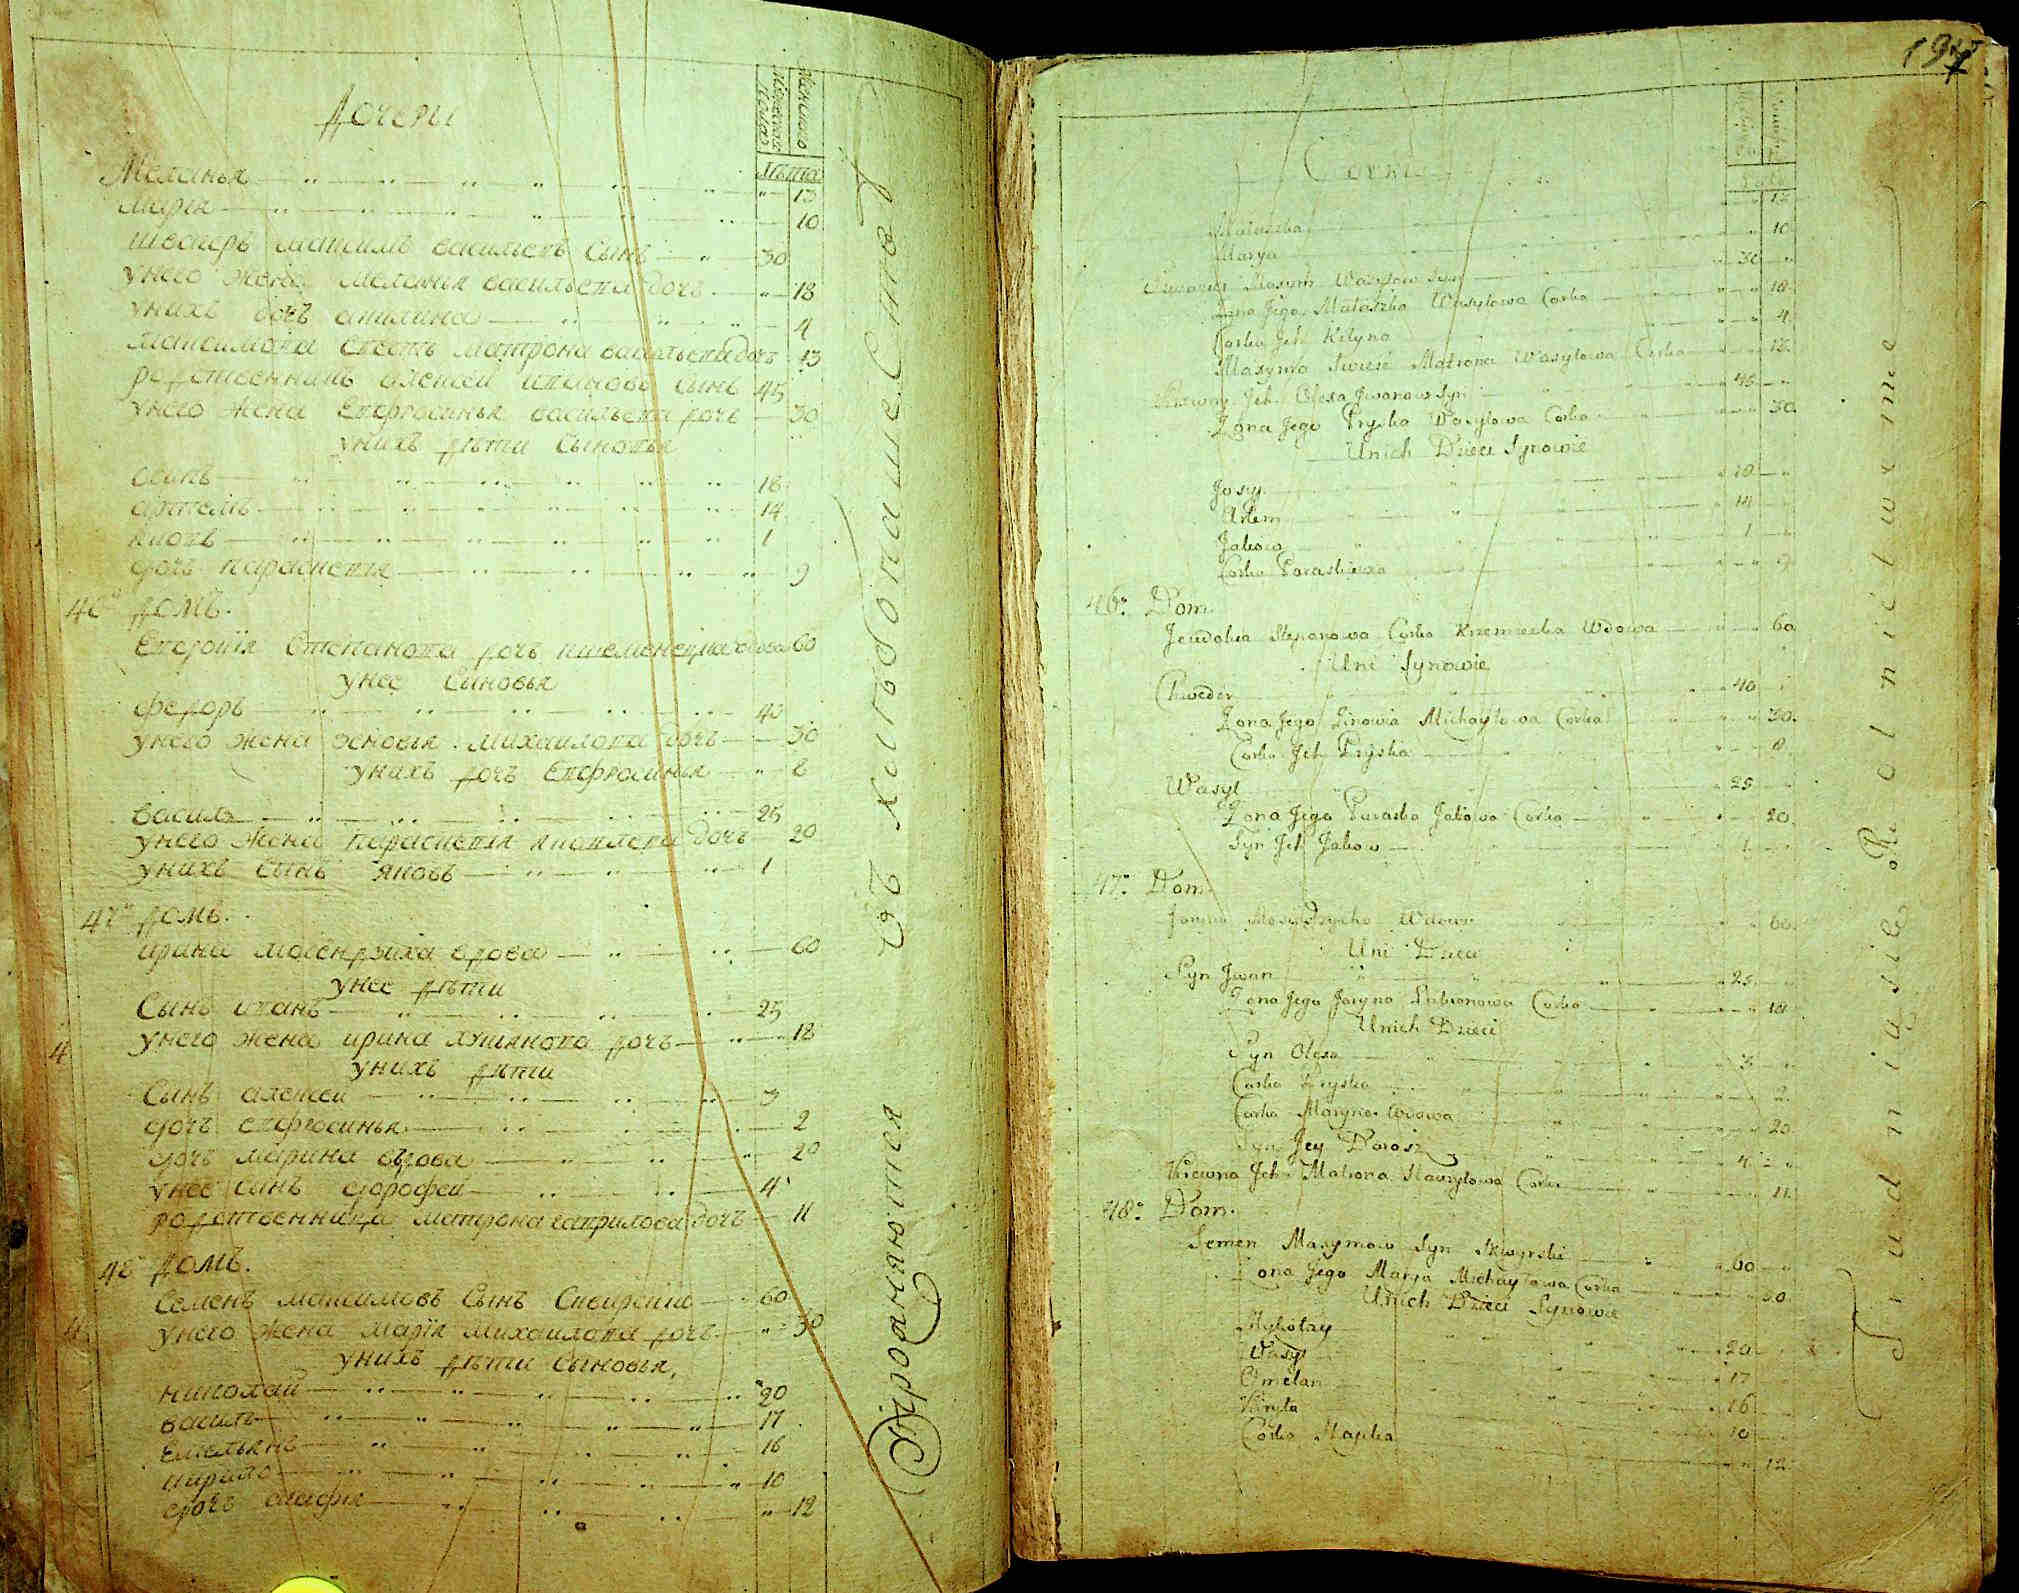 Дочери
Женского
Мужеска пола
Лѣта
Меланья 13
Марія 10
шваеръ максимъ васильевъ сынъ 30
унего жена меланья васильева дочъ 18
унихъ дочъ акилина 4
максимова свесть матрона васильева дочъ 13
родственникъ алексей ивановъ сынъ 45
унего жена Евфросинья васильева дочъ 30
унихъ дѣти сыновья
осипъ 18
артемъ 14
яковъ 1
дочъ параскевія 9
46й домъ.
Евдокія Степанова дочъ вдова 60
унее сыновья
федоръ 40
унего жена зеновья михайлова дочъ 30
унихъ дочъ Евфросинья 8
василь 25
унего жена параскевія яковлева дочъ 20
унихъ сынъ яковъ 1
47й домъ.
ирина вдова 60
унее дѣти
Сынъ иванъ 25
унего жена ирина дочъ 18
унихъ дѣти
Сынъ алексей 3
дочъ евфросинья 2
дочъ марина вдова 20
унее синъ дорофей 4
родственница матрона гаврилова дочъ 11
48й домъ.
Семенъ максимовъ сынъ Сквирскій 60
унего жена марія михайлова дочъ 30
унихъ дѣти сыновья,
николай 20
василь 17
емельянъ 16
кирило 10
дочъ агафія 12
Упражняются
въ хлебопашестве
197
Corki
Małaszka 12
Marya 10
Maxym Wasylow Syn 30
Zona Jego Małaszka Wasylowa Corka 18
Corka Jch Kilyna 4
Maxyma Swiesć Matrona Wasylowa Corka 13
Krewny Jch Olexa Jwanow Syn 45
Zona Jego Pryska Wasylowa Corka 30
Unich Dzieci Synowie
Josyp 18
Artem 14
Jakow 1
Corka Paraskiewa 9
46. Dom.
Jewdokia Stepanowa Corka Wdowa 60
Uni Synowie
Chwedor 40
Zona Jego Zinowia Michayłowa Corka 30
Corka Jch Pryska 8
Wasyl 25
Zona Jego Paraska Jakowa Corka 20
Syn Jch Jakow 1
47. Dom.
Wdowa 60
Uni Dzieci
Syn Jwan 25
Zona Jego Jaryna Corka 18
Unich Dzieci
Syn Olexa 3
Corka Pryska 2
Corka Maryna Wdowa 20
Syn Jey Dorosz 4
Krewna Jch Matrona Hawryłowa Corka 11
48. Dom.
Semen Maxymow Syn Skwyrski 60
Zona Jego Marya Michayłowa Corka 30
Unich Dzieci Synowie
Mykołay 20
Wasyl 17
Omelan 16
Kiryła 10
Corka Hapka 12
Trudnią się Rolnictwem